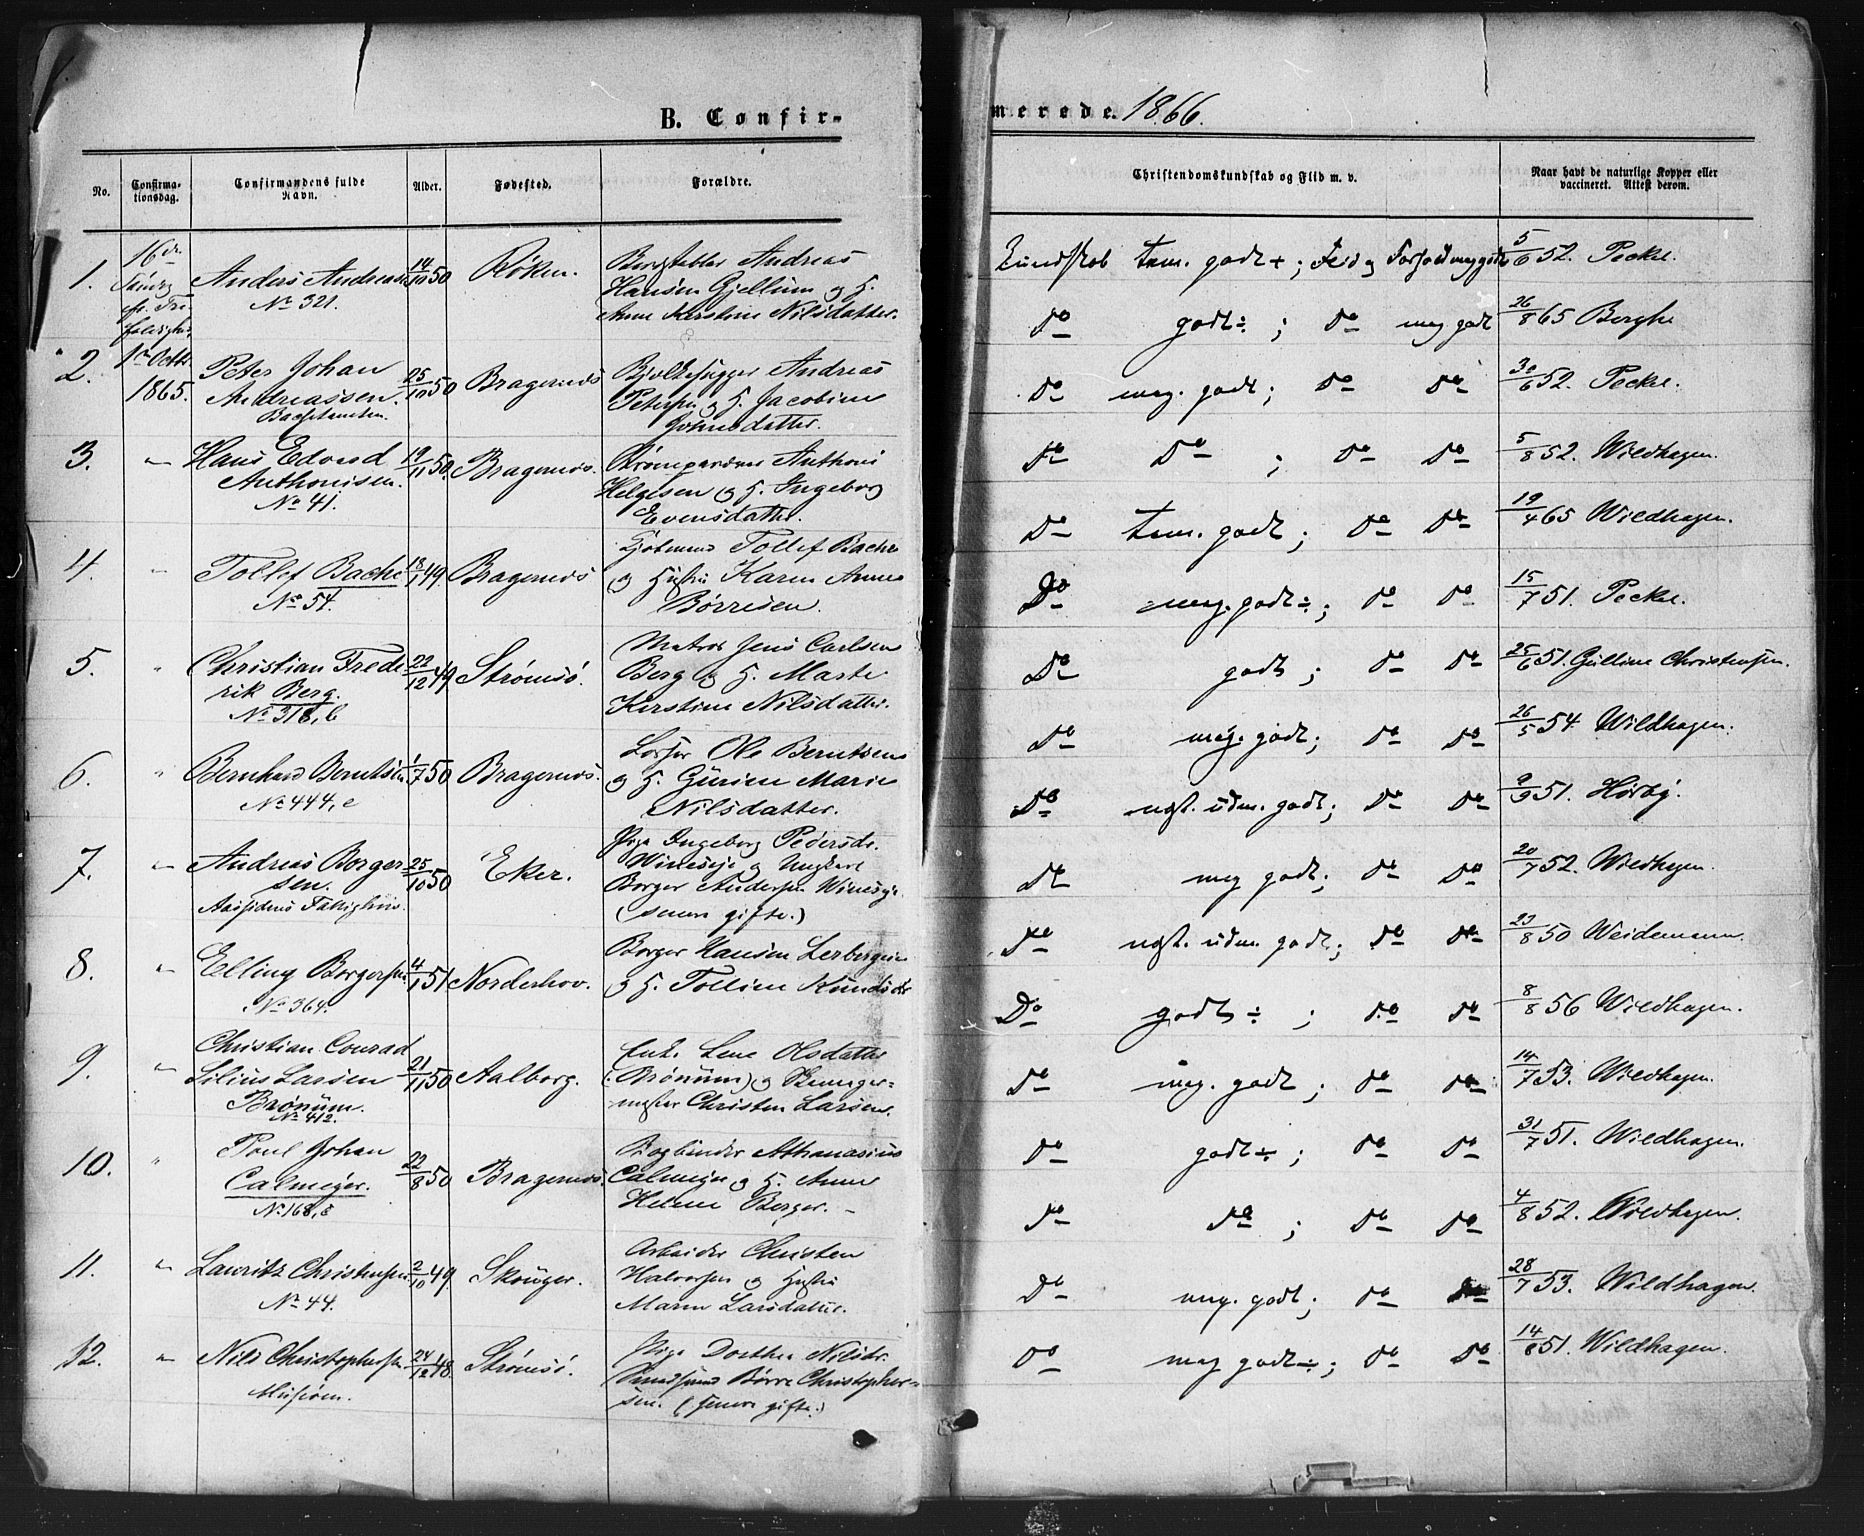 B. Confir-
merede. 1866.
No.
Confirma-
tionsdag.
Confirmandens fulde
Navn.
Alder.
Fødested.
Forældre.
Christendomskundskab og Flid m. v.
Naar havt de naturlige Kopper eller
vaccineret. Attest derom.
1.
16de
Søndag
fr. Tre
Anders Andreas
No 321.
14/10 50
Røken.
Andreas
Hansen Gjellum og H.
Anne Kirstine Nilsdatter.
Kundskab tem. godt + ; Flid og Forhold meg godt
5/6 52. Peckel.
2.
1st Octbr
1865.
Peter Johan
Andreassen.
25/10 50
Bragernæs
Bjelkehugger Andreas
Petersen og H. Jacobine
Johnsdatter.
Do godt ÷ ; Do meg godt
26/8 65 Berghe
3.
"
Hans Edvard
Anthonisen.
No 41.
19/11 50.
Bragernæs.
Anthoni
Helgesen og H. Ingeborg
Evensdatter.
Do meg. godt ; Do Do
30/6 52. Peckel.
4.
"
Tollef Bache
No 54.
18/1 49.
Bragernæs
Kjøbmand Tollef Bache
og Hustru Karen Anne
Børresen.
Do Do ; Do Do
5/8 52. Wildhagen.
5.
"
Christian Frede
rik Berg.
No 318, b
22/12 49
Strømsø.
Matros Jens Carlsen
Berg og H. Marte
Kirstine Nilsdatter.
Do tem. godt ; Do Do
19/4 65 Wildhagen.
6.
"
Bernhard Berntsen
No 444, c
1/7 50
Bragernæs.
Losser Ole Berntsen
og H. Gurine Marie
Nilsdatter.
Do meg. godt ÷ ; Do Do
15/7 51. Peckel.
7.
"
Andreas Borger
sen.
Aassidens Fattighus.
25/10 50
Eker.
Pige Ingeborg Pedersdr.
Wineseje og Ungkarl
Borger Andersen Wineseje
(senere gifte.)
Do godt ; Do Do
25/6 51. Gulline Christensen.
8.
"
Elling Borgersen
No 364.
4/1 51
Norderhov.
Borger Hansen Lerbergeie
og H. Tolline Knudsdr
Do meg. godt ; Do Do
26/5 54 Wildhagen.
9.
"
Christian Conrad
Silius Larsen
Brønum.
No 412.
21/11 50
Aalborg.
Enke Lene Olsdatter
(Brønum) og
mester Christen Larsen.
Do ngt. udm. godt ; Do Do
9/9 51. Hørbÿ.
10.
"
Poul Johan
Calmeyer.
No 168, c
22/8 50
Bragernæs.
Bogbinder Athanasius
Calmeyer og H. Anne
Helene Berger. –
Do meg godt ; Do Do
20/7 52. Wildhagen.
11.
"
Lauritz Christensen
No 44.
2/10 49.
Skouger.
Arbeider Christen
Halvorsen og Hustru
Maren Larsdatter.
Do ngt. udm. godt ; Do Do
23/8 50 Weidemann.
12.
"
Nils Christophersen
24/12 48.
Strømsø.
Pige Dorthea Nilsdr.
Børre Christopher-
sen. (senere gifte.)
Do godt ÷ ; Do Do
8/8 56 Wildhagen.
Do meg. godt ; Do Do
14/7 53. Wildhagen.
Do godt ÷ ; Do Do
31/7 51. Wildhagen.
Do Do ; Do Do
4/8 52. Wildhagen.
Do meg. godt ; Do Do
28/7 53. Wildhagen.
Do meg godt ÷ ; Do Do
14/8 51. Wildhagen.